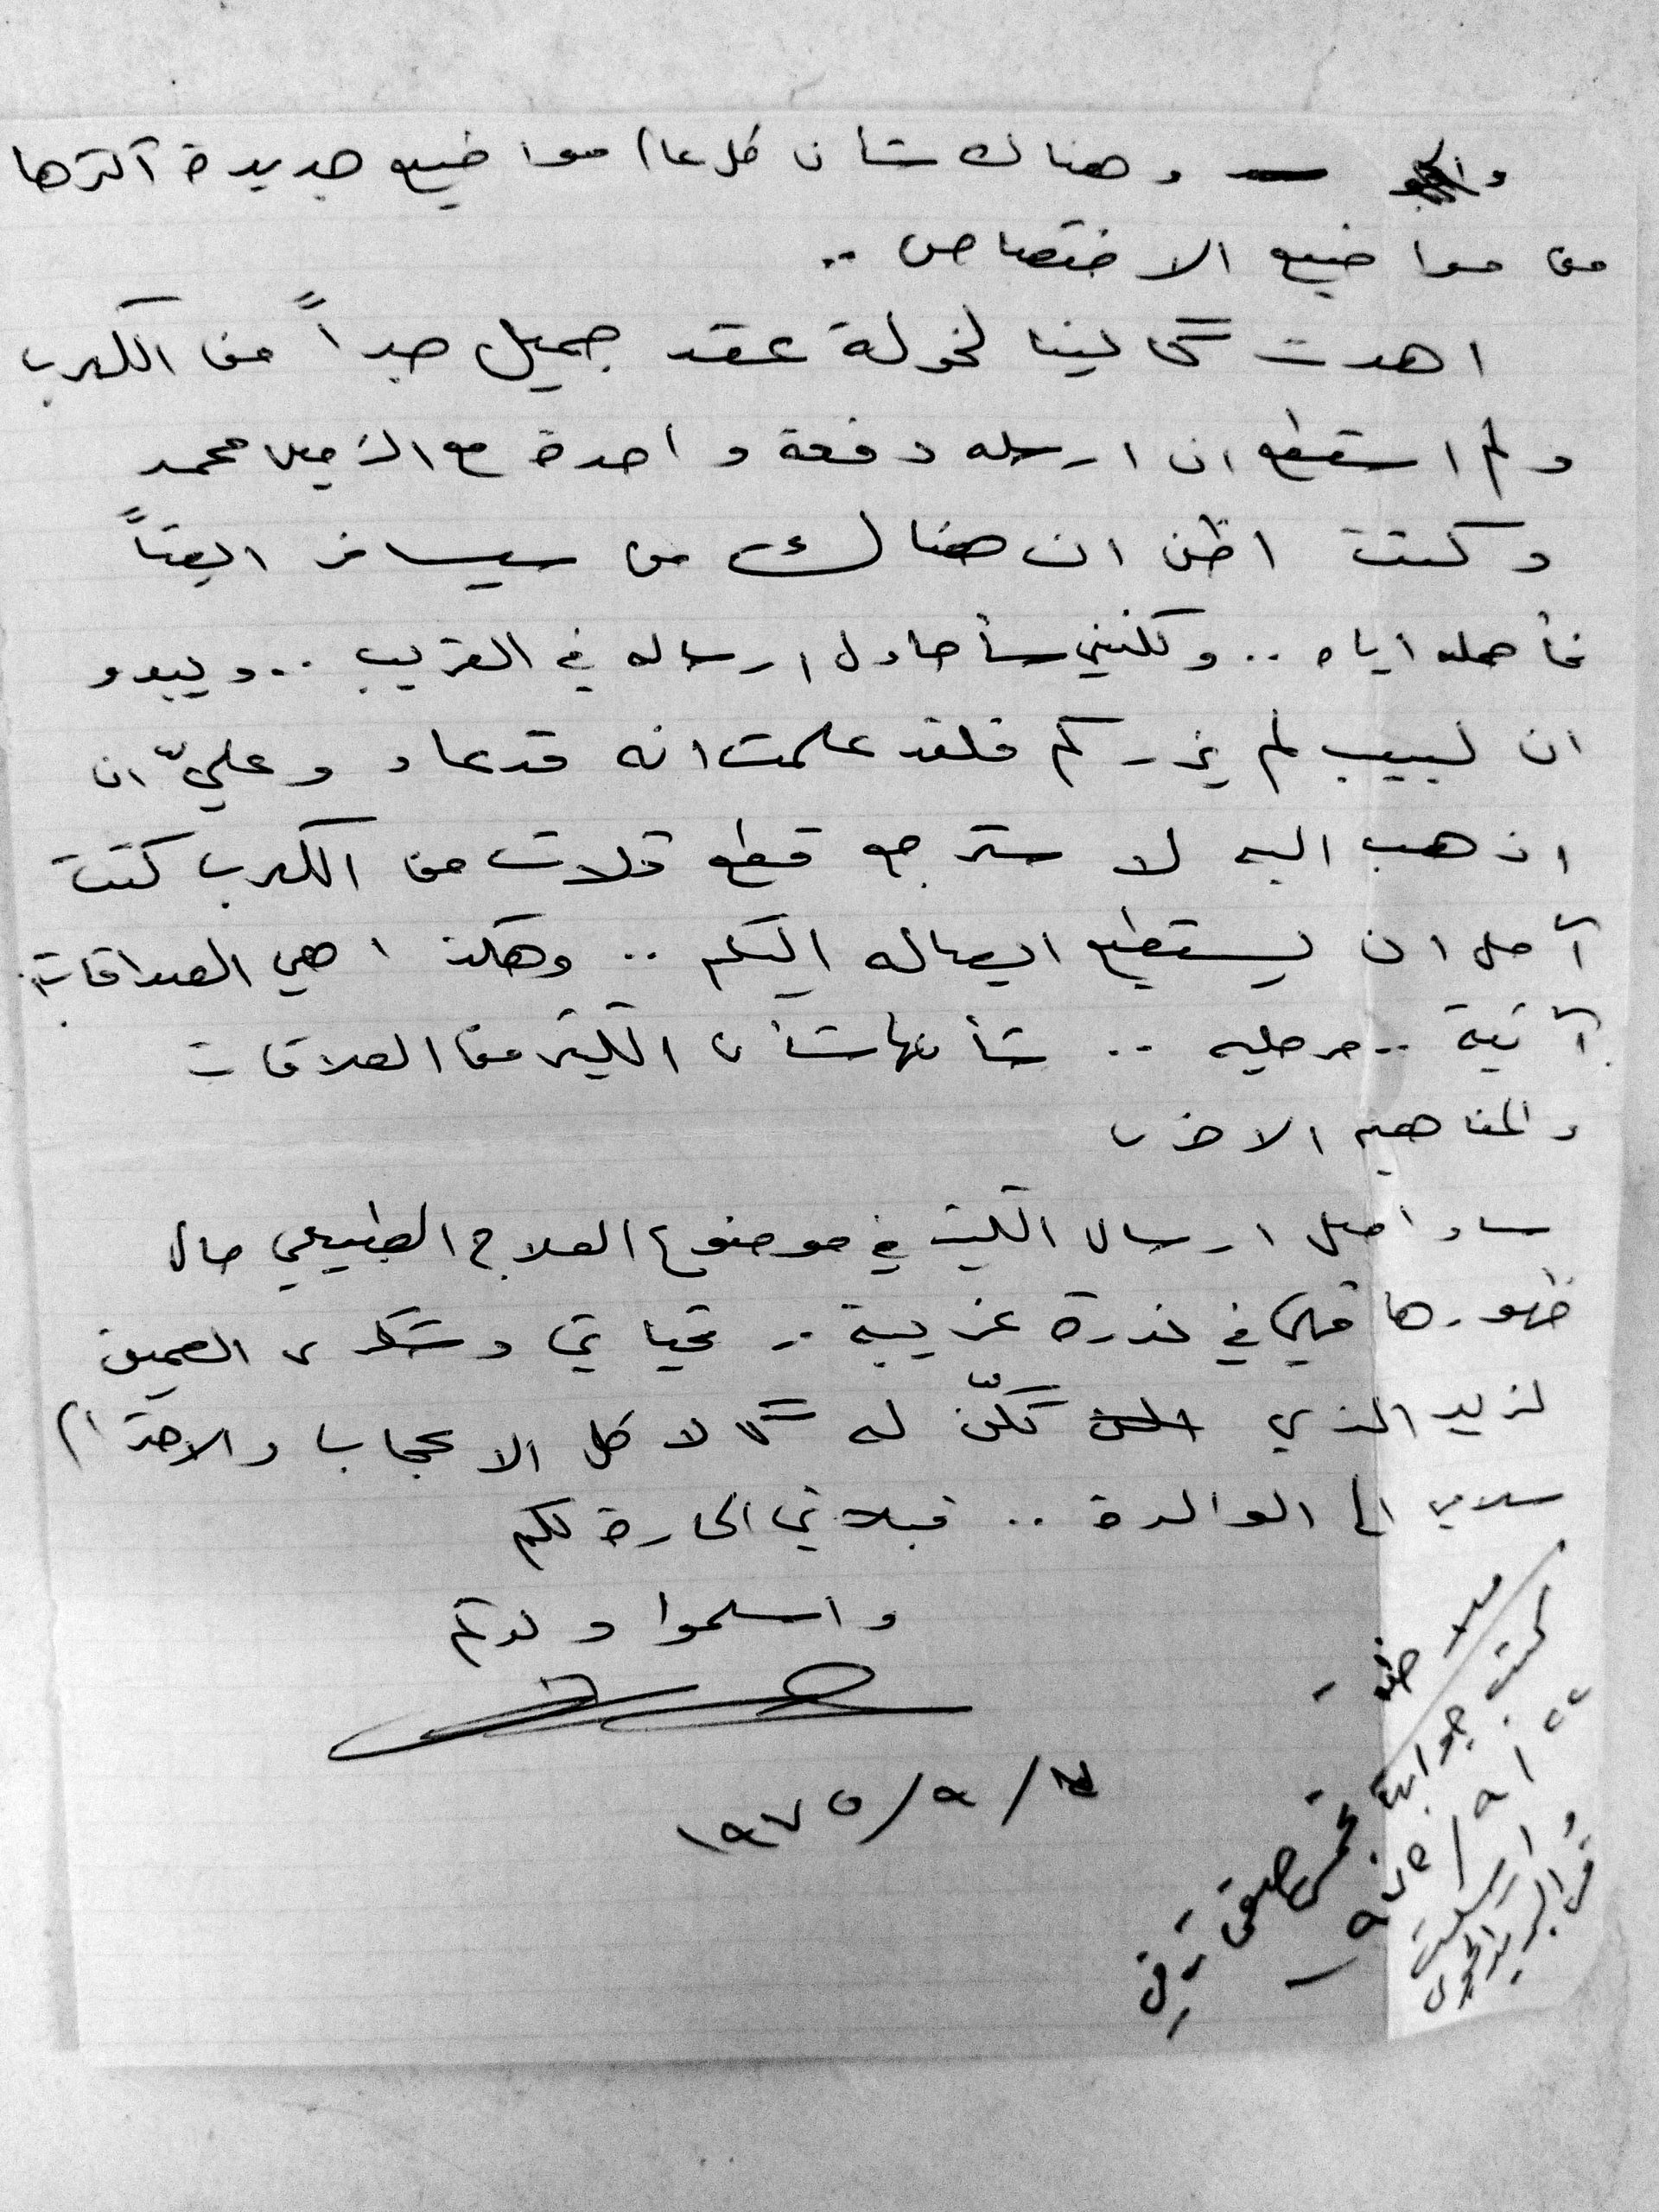 و وهناك شأن كل عام مواضيع جديدة اكثرها
من مواضيع الاختصاص ..
اهدت گالينا لخولة عقد جميل جداً من الكهرب
ولم استطع ان ارسله دفعة واحدة مع الزميل محمد
وكنت اظن ان هناك من سيسافر ايضاً
فأحمله اياه .. ولكنني سأحاول ارساله في القريب .. ويبدو
ان لبيب لم يزركم فلقد علمت انه قد عاد وعليّ ان
اذهب اليه لاسترجع قطع ثلاث من الكهرب كنت
آمل ان يستطيع ايصاله اليكم .. وهكذا هي الصداقات
آنية .. مرحليه .. شأنها شأن الكثير من العلاقات
والمفاهيم الاخرى
ساواصل ارسال الكتب في موضوع العلاج الطبيعي حال
ظهورها فهي في ندرة غريبة .. تحياتي وشكري العميق
لزيد الذي تكنّ له گالا كل الاعجاب والاحترام
سلامي الى الوالدة .. قبلاتي الحارة لكم
واسلموا ودمتم
١٩٧٥/٩/١٤
كتبت جوابه
١٩٧٥/٩/
وارسلت
في البريد الجوي